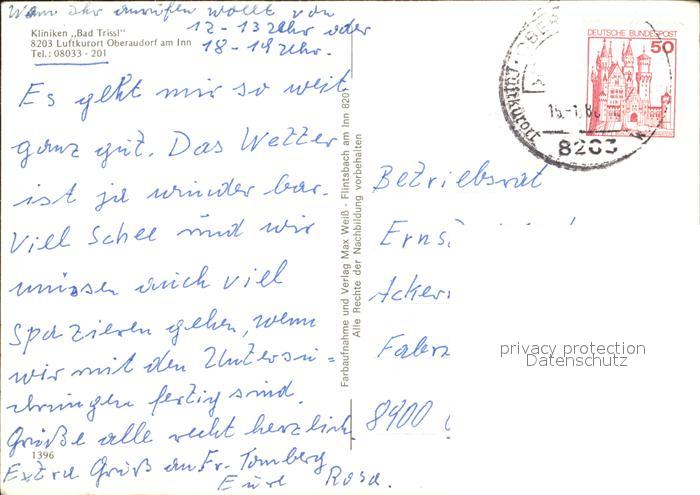 Wenn Ihr anrufen wollt von
12-13 Uhr oder
18-19 Uhr.
Kliniken „Bad Trissl"
8203 Luftkurort Oberaudorf am Inn
Tel.: 08033 - 201
Es geht mir so weit
ganz gut. Das Wetter
ist ja wunder bar.
Viel Schee und wir
müssen auch viel
spazieren gehen, wenn
wir mit den Untersu=
chungen fertig sind.
Grüße alle recht herzlich
Extra Gruß an Fr. Tomberg
Eure Rosa.
1396
Farbaufnahme und Verlag Max Weiß - Flintsbach am Inn 8201
Alle Rechte der Nachbildung vorbehalten
DEUTSCHE BUNDESPOST
50
Luftkurort
8203
Betriebsrat
Erns
Acker
Faber
8900
privacy protection
Datenschutz